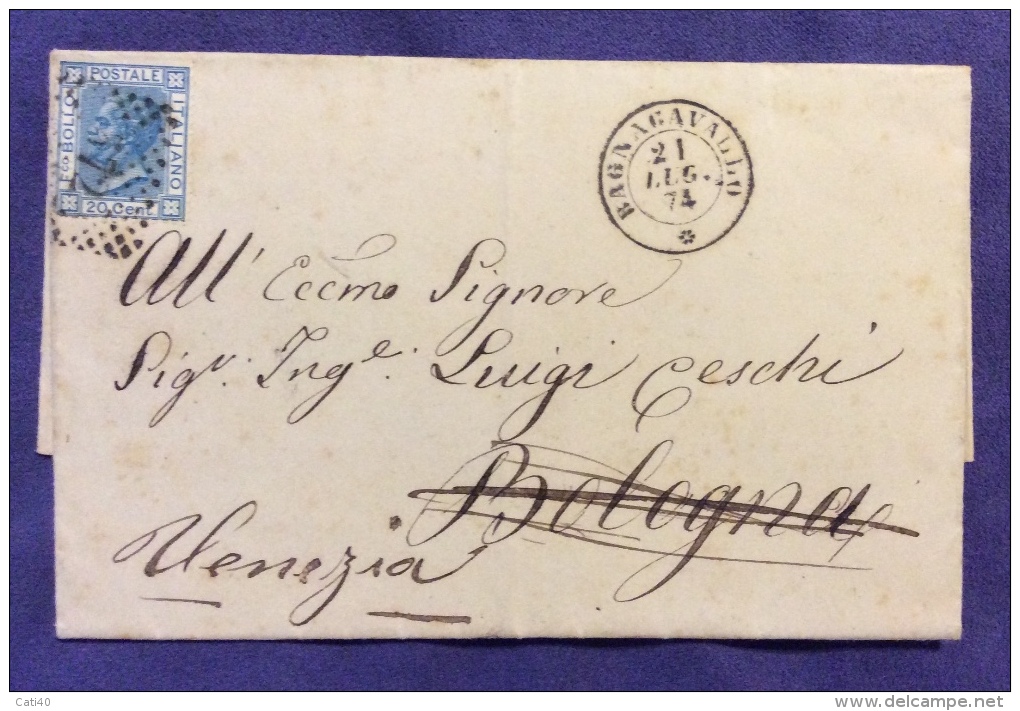 POSTALE
FCO BOLLO
ITALIANO
20 Cent
BAGNACAVALLO
21
LUG.
74
All' Eccmo Signore
Sigr. Inge. Luigi Ceschi
Bologna
Venezia
Cati40
www.delcampe.net